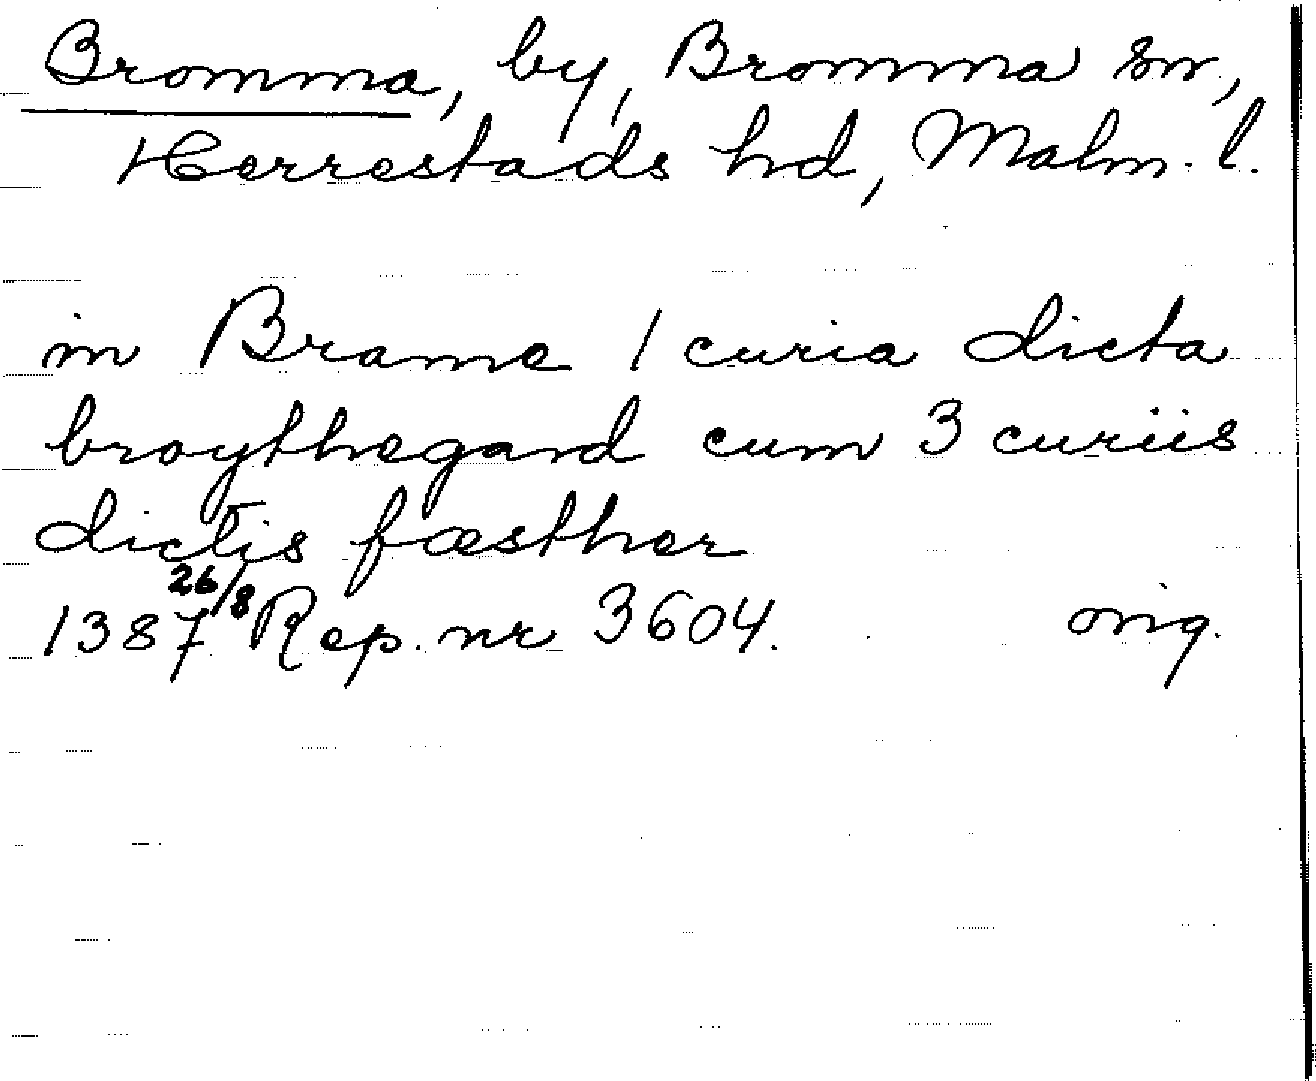 Bromma, by, Bromma sn,
Herrestads hd, Malm. l.
in Brame 1 curia dicta
broythegard cum 3 curiis
dictis fæsther
1387 26/8 Rep. nr 3604. orig.